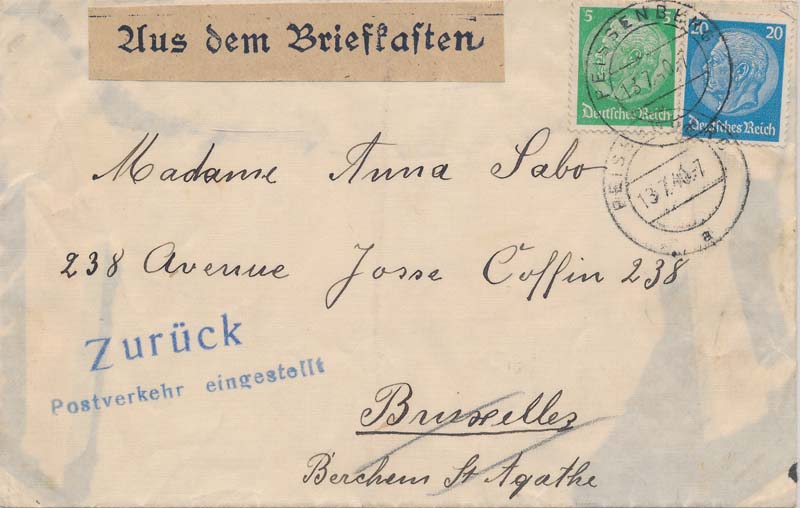 Aus dem Briefkasten
5 5
Deutsches Reich
20 20
Deutsches Reich
PEISSENBERG
13.7.40.-7
PEISSENBERG
13.7.40.-7
a
Madame Anna Sabo
238 Avenue Josse Goffin 238
Zurück
Postverkehr eingestellt
Bruxelles
Berchem St Agathe